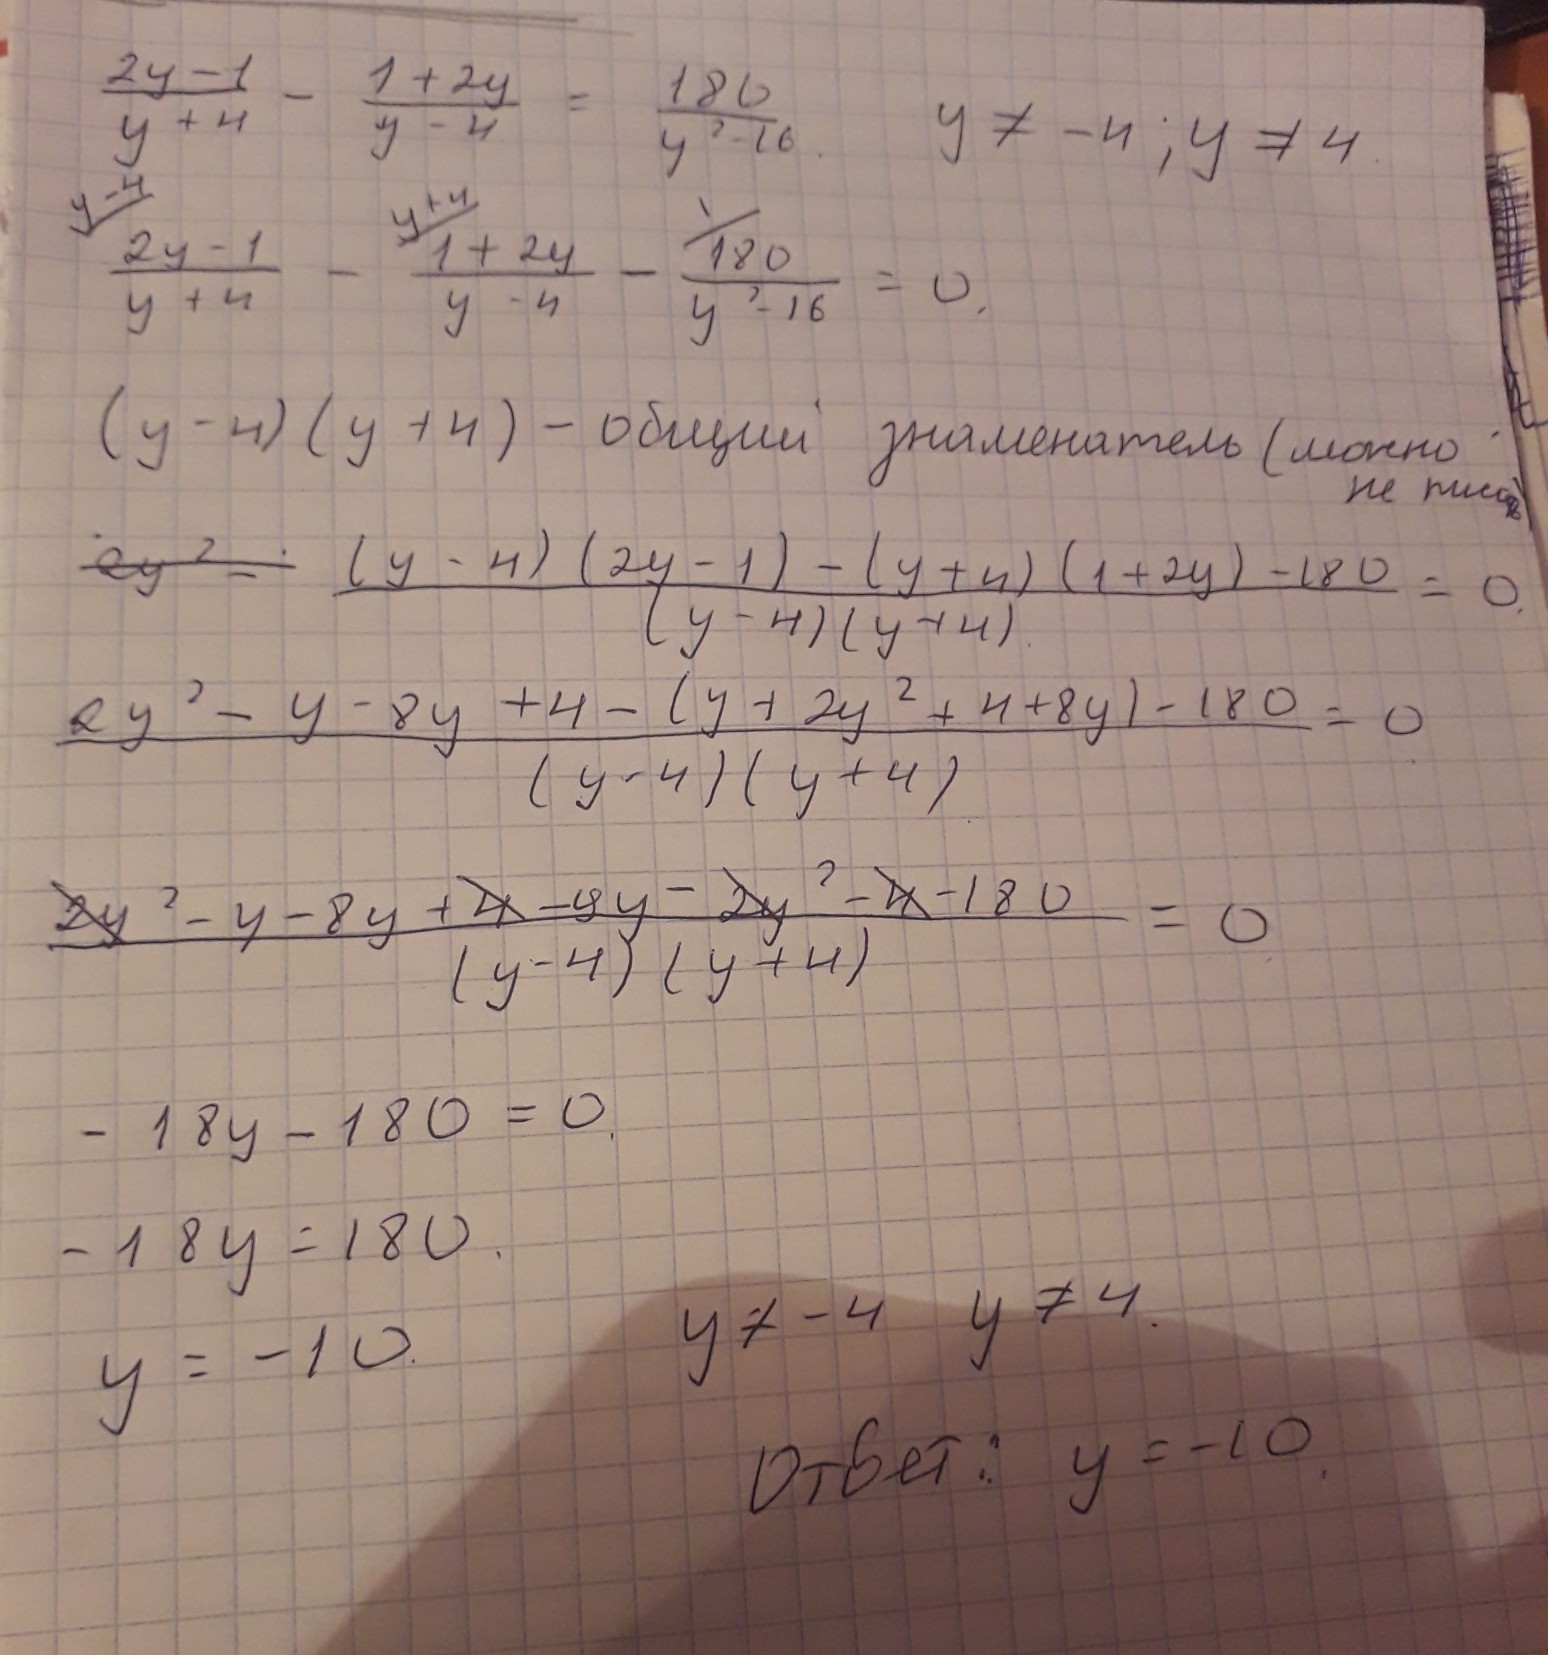 (2y-1)/(y+4) - (1+2y)/(y-4) = 180/(y²-16). y ≠ -4; y ≠ 4.
y-4 / (2y-1)/(y+4) - y+4 / (1+2y)/(y-4) - 1 / 180/(y²-16) = 0.
(y-4)(y+4) - общий знаменатель (можно
не писать)
2y² - ((y-4)(2y-1) - (y+4)(1+2y) - 180)/((y-4)(y+4)) = 0.
(2y² - y - 8y + 4 - (y + 2y² + 4 + 8y) - 180)/((y-4)(y+4)) = 0
(2y² - y - 8y + 4 - 9y - 2y² - 4 - 180)/((y-4)(y+4)) = 0
- 18y - 180 = 0.
- 18y = 180.
y = -10. y ≠ -4 y ≠ 4.
Ответ: y = -10.